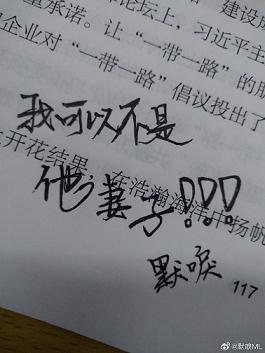 建设成
重承诺。
论坛上，习近平主
让“一带一路”的朋
企业对“一带一路”倡议投出了
我可以不是
开花结果，在浩瀚海洋中扬帆
他妻子!!!
默唉
117
@默唉ML